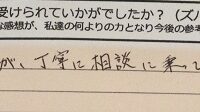 受けられていかがでしたか？（ズバ
な感想が、私達の何よりの力となり今後の参考
が、丁寧に相談に乗って